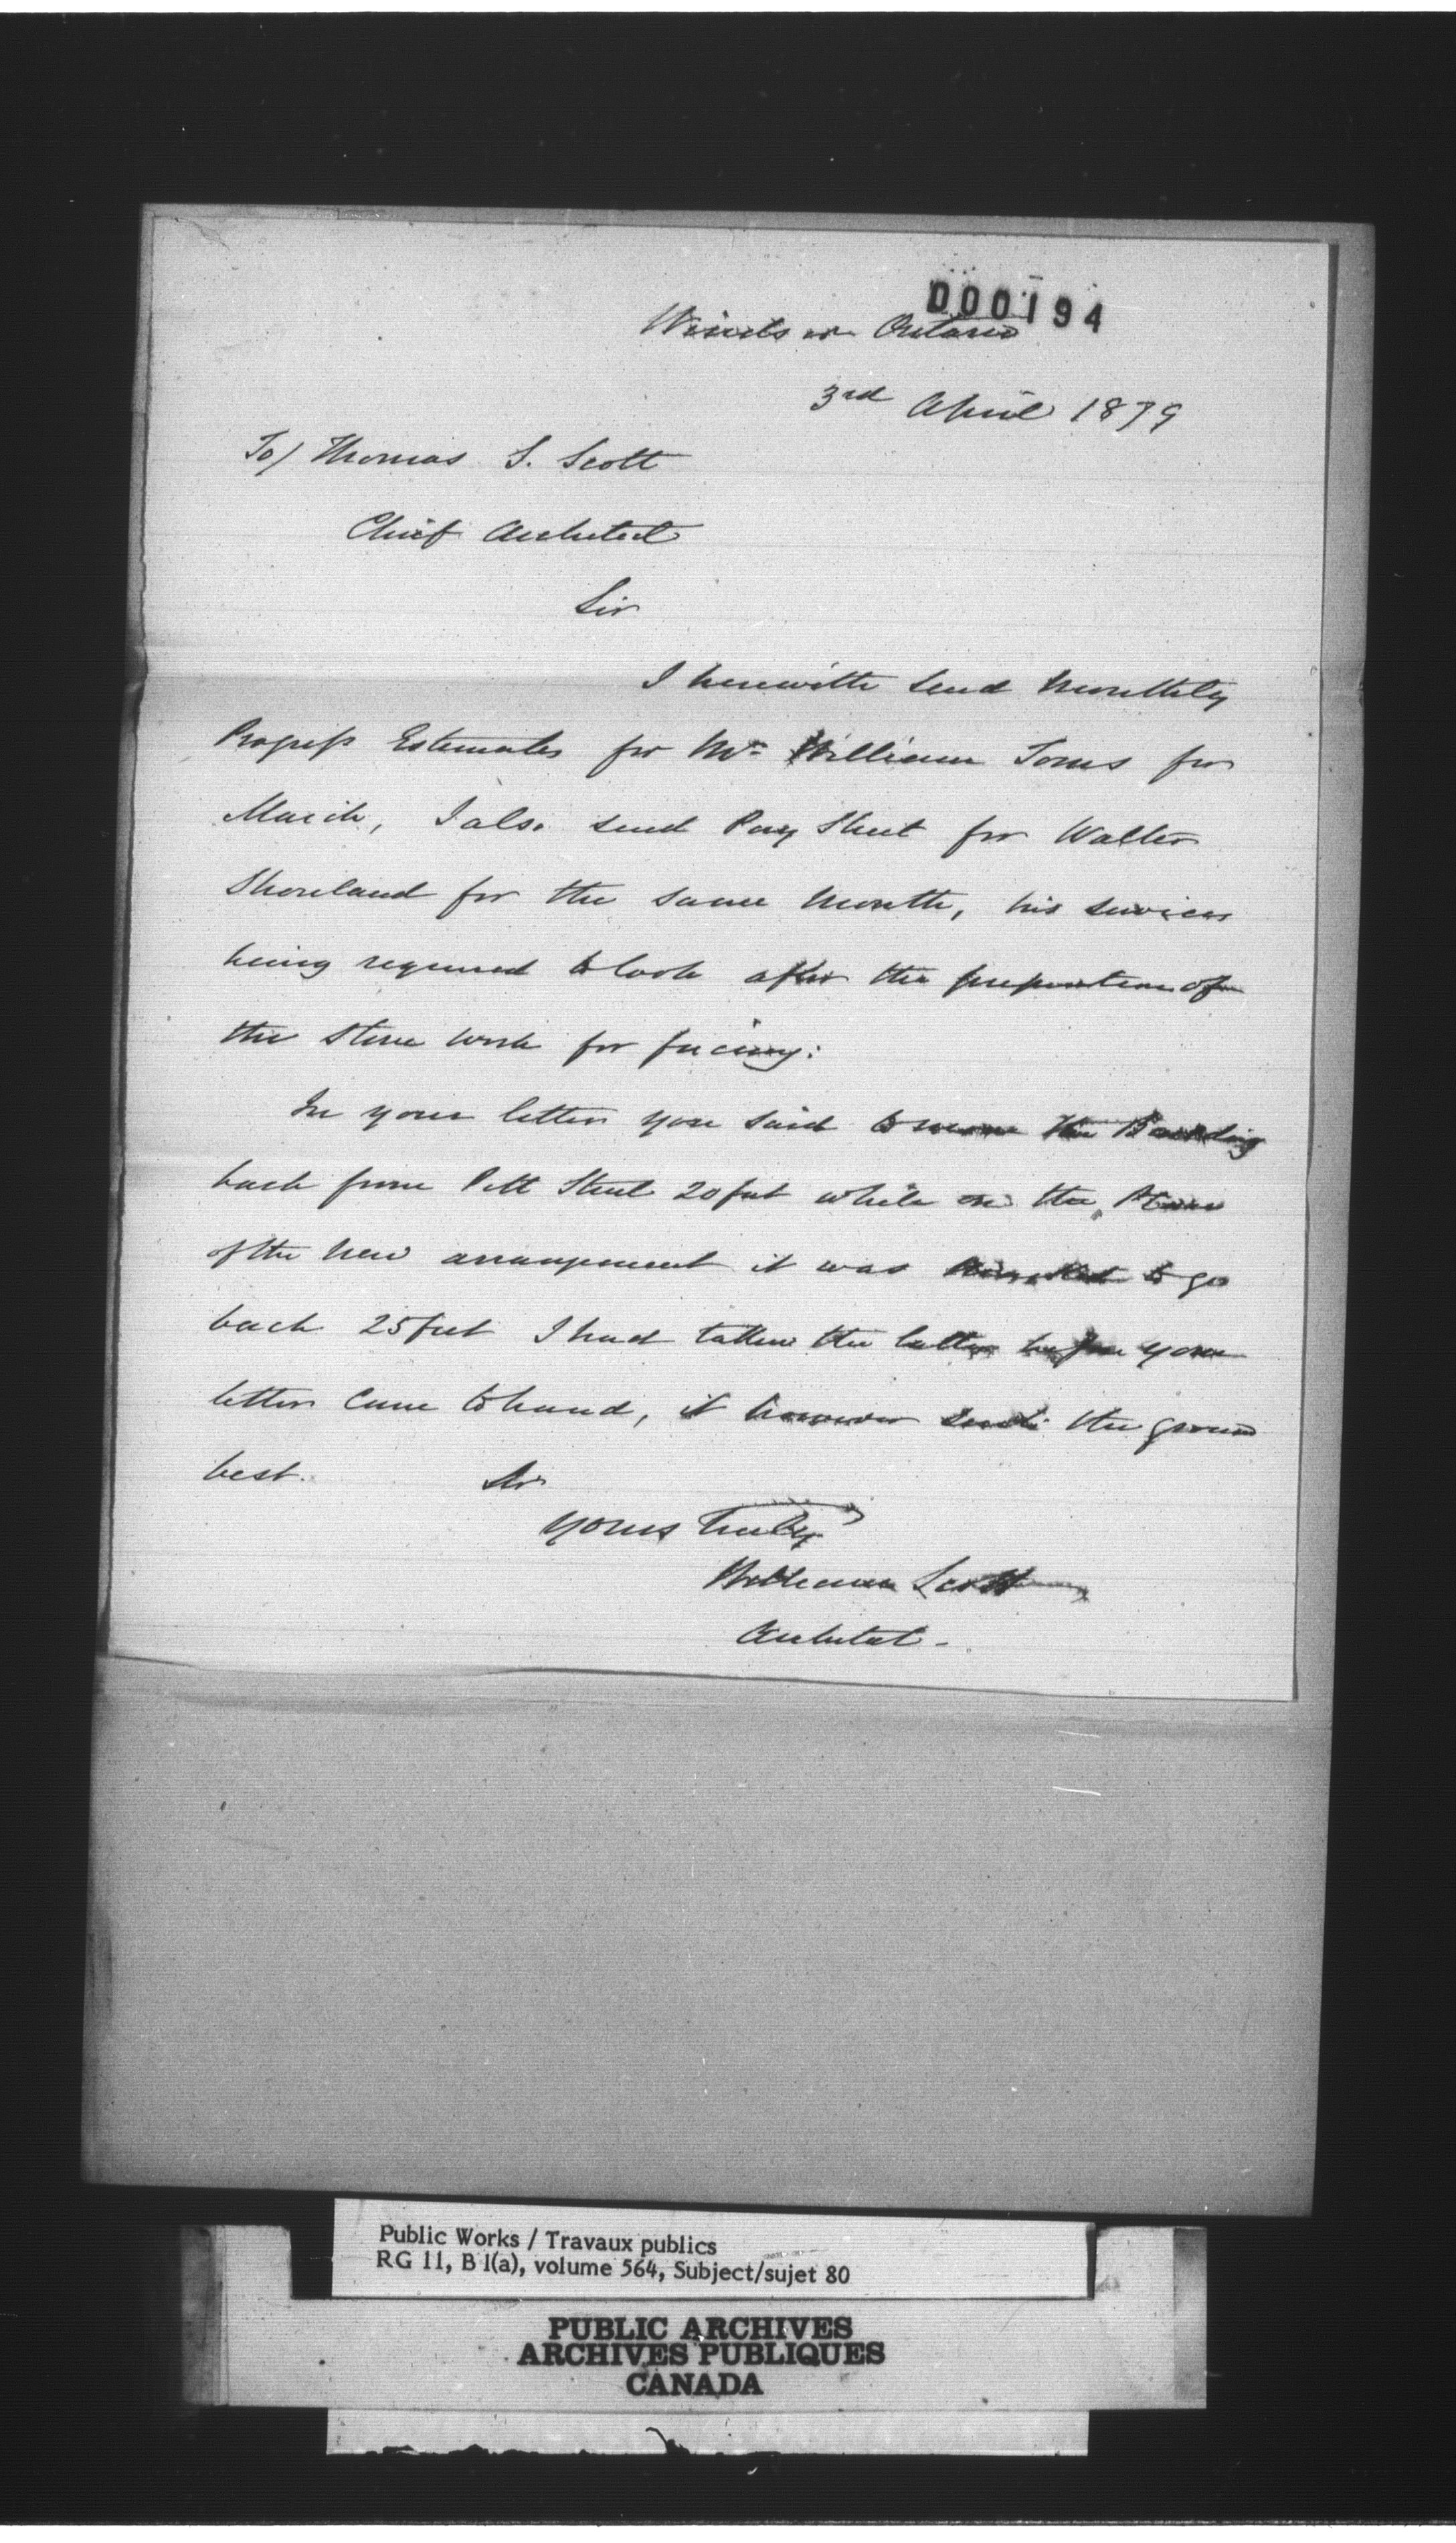 000194
Windsor Ontario
3rd April 1879
To/ Thomas S. Scott
Chief Architect
Sir
I herewith send Monthly
Progress Estimates for Mr William Toms for
March, I also send Pay Sheet for Walter
Shoreland for the same Month, his services
being required to look after the preparation of
the stone work for facing:
In your letter you said to move the Building
back from Pitt Street 20 feet while on the Plan
of the new arrangement it was to go
back 25 feet I had taken the latter before your
letter came to hand, it however suits the ground
best. Sir
Yours Truly
William Scott
Architect -
Public Works / Travaux publics
RG 11, B 1(a), volume 564, Subject/sujet 80
PUBLIC ARCHIVES
ARCHIVES PUBLIQUES
CANADA